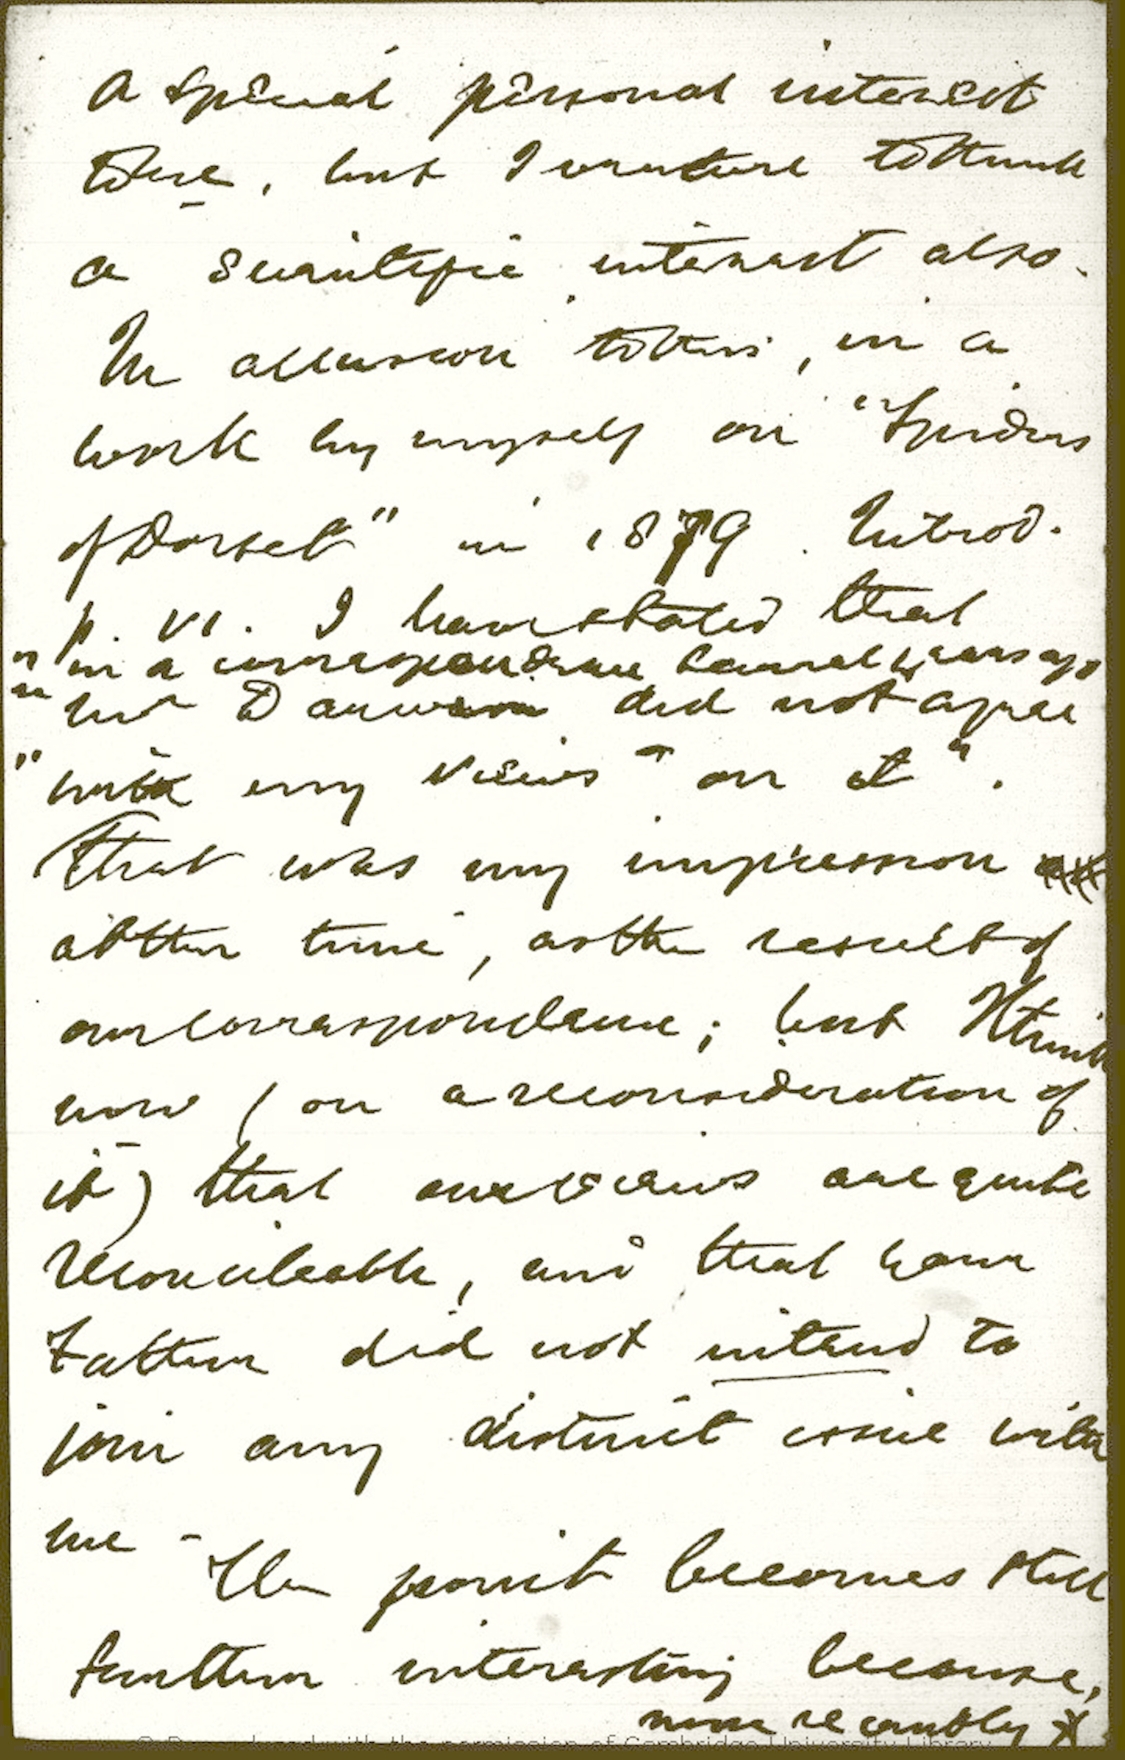 a special personal interest
to me, but I venture to think
a scientific interest also.
In allusion to this, in a
work by myself on "Spiders
of Dorset" in 1879. Introd.
p. VI. I have stated that
"in a correspondence several years ago
"Mr Darwin did not agree
"with my views "on it".
That was my impression
at the time, as the result of
our correspondence; but I think
now (on a reconsideration of
it) that our views are quite
reconcileable, and that your
Father did not intend to
join any distinct issue with
me –
The point becomes still
further interesting because,
more recently